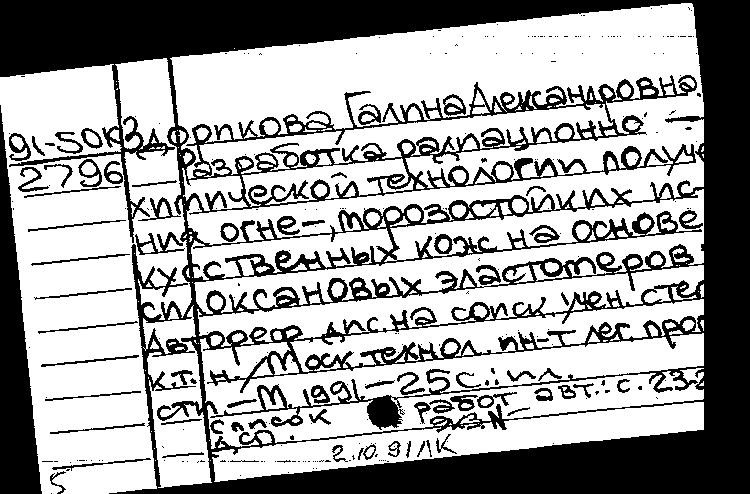 91-50К Здорикова, Галина Александровна.
2796 Разработка радпационно-
химической технологии получе
ния огне-, морозостойких ис-
кусственных кож на основе
силоксановых эластомеров
Автореф. дис. на соиск. учен. степ
к.т.н. / Моск. технол. ин-т лег. пром
сти. - М. 1991. - 25 с.: ил.
Список работ авт.: с. 23-2
ДСП.
2.10.91 ЛК
5